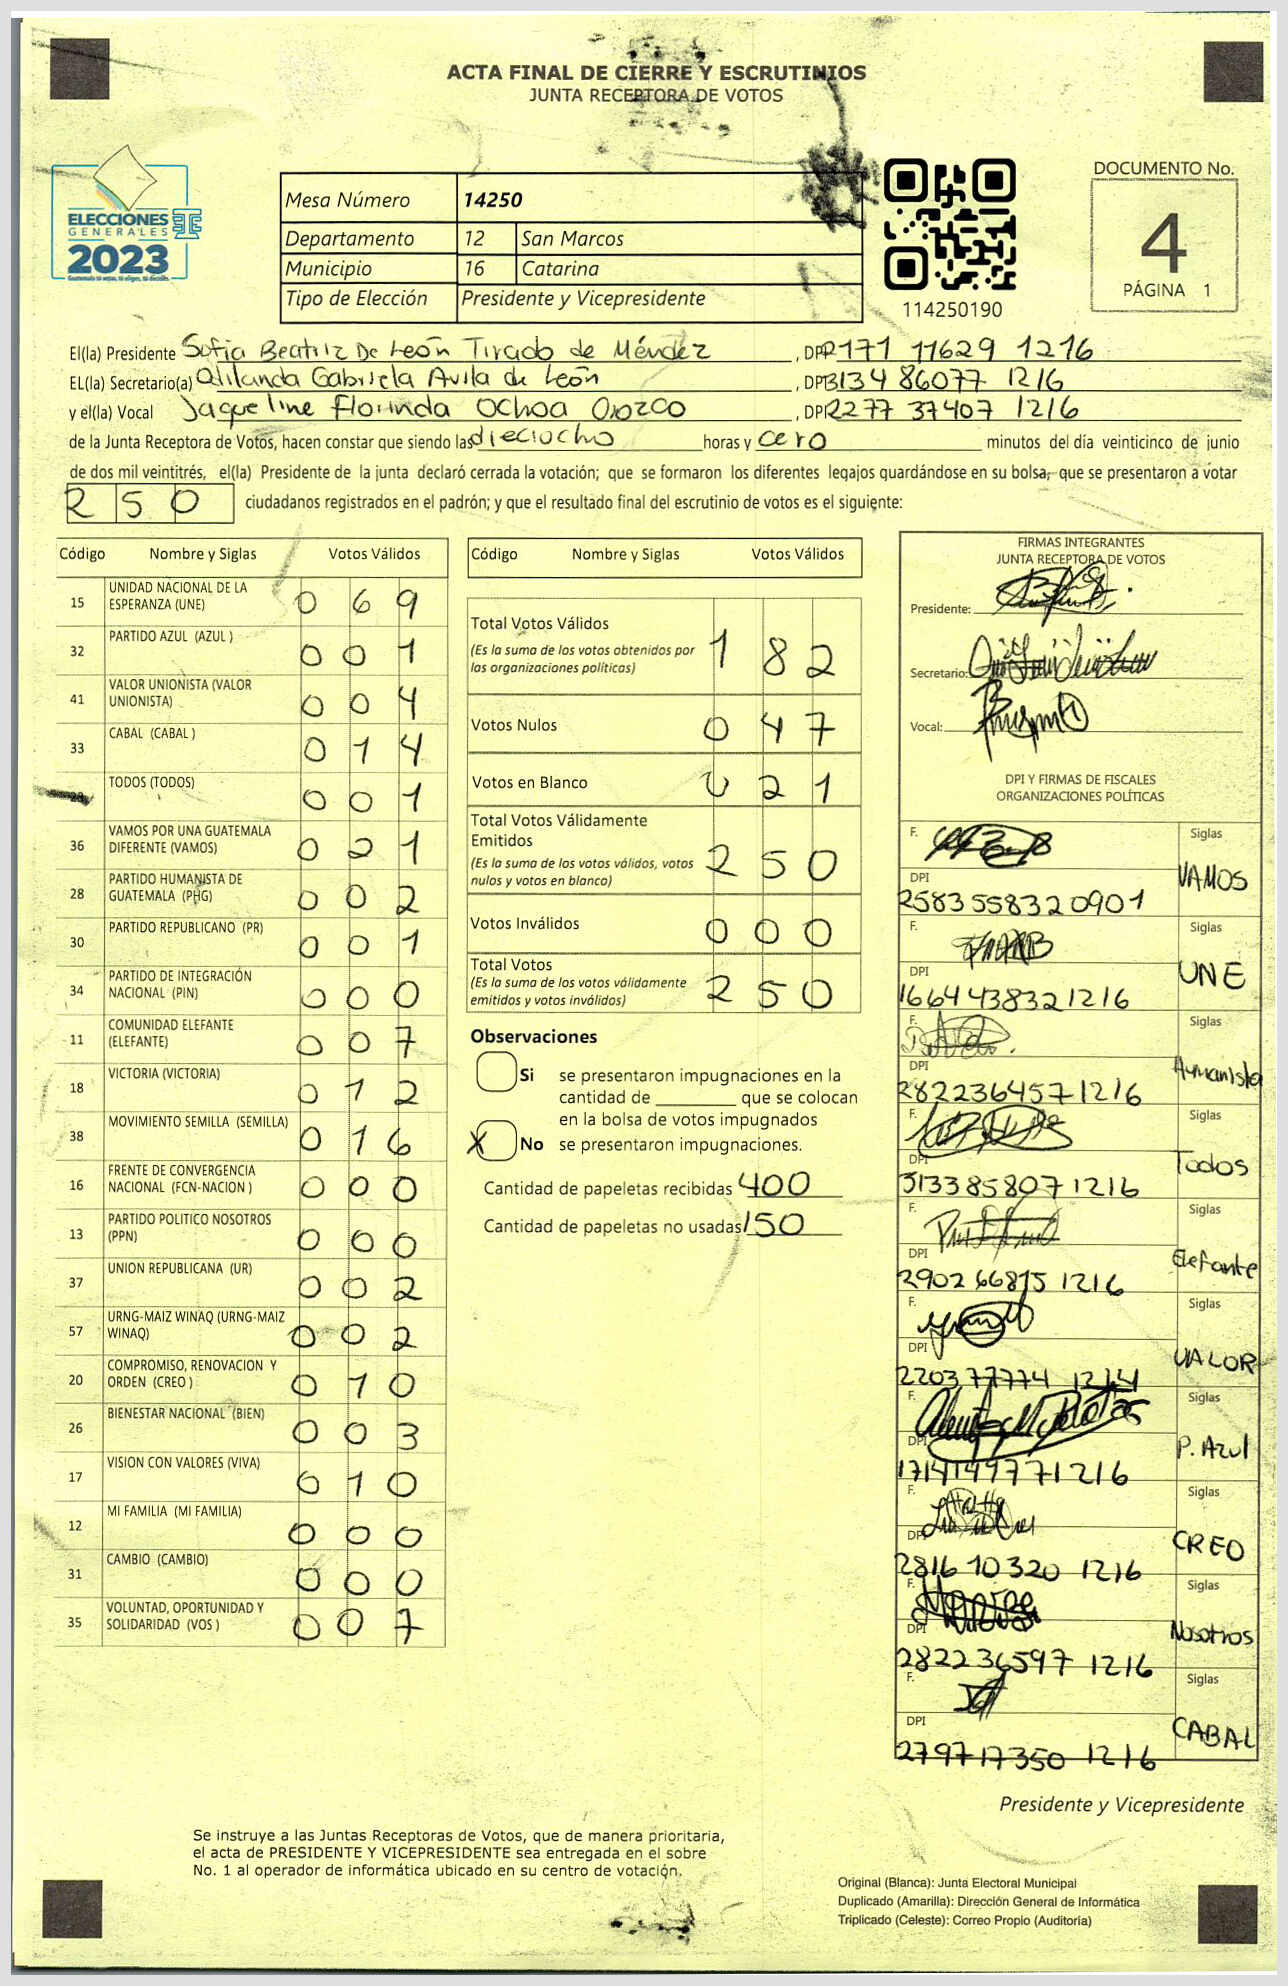 ACTA FINAL DE CIERRE Y ESCRUTINIOS
JUNTA RECEPTORA DE VOTOS
ELECCIONES
GENERALES
2023
Mesa Número 14250
Departamento 12 San Marcos
Municipio 16 Catarina
Tipo de Elección Presidente y Vicepresidente
114250190
DOCUMENTO No.
4
PÁGINA 1
El(la) Presidente Sofia Beatriz De León Tirado de Méndez, DPI 2171 11629 1216
EL(la) Secretario(a) Gabriela Avila de León, DPI 3134 86077 1216
y el(la) Vocal Jaqueline Florinda Ochoa Orozco, DPI 2277 37407 1216
de la Junta Receptora de Votos, hacen constar que siendo las dieciocho horas y cero minutos del día veinticinco de junio
de dos mil veintitrés, el(la) Presidente de la junta declaró cerrada la votación; que se formaron los diferentes legajos guardándose en su bolsa, que se presentaron a votar
250 ciudadanos registrados en el padrón; y que el resultado final del escrutinio de votos es el siguiente:
Código Nombre y Siglas Votos Válidos
15 UNIDAD NACIONAL DE LA ESPERANZA (UNE) 0 6 9
32 PARTIDO AZUL (AZUL ) 0 0 1
41 VALOR UNIONISTA (VALOR UNIONISTA) 0 0 4
33 CABAL (CABAL ) 0 1 4
TODOS (TODOS) 0 0 1
36 VAMOS POR UNA GUATEMALA DIFERENTE (VAMOS) 0 2 1
28 PARTIDO HUMANISTA DE GUATEMALA (PHG) 0 0 2
30 PARTIDO REPUBLICANO (PR) 0 0 1
34 PARTIDO DE INTEGRACIÓN NACIONAL (PIN) 0 0 0
11 COMUNIDAD ELEFANTE (ELEFANTE) 0 0 7
18 VICTORIA (VICTORIA) 0 1 2
38 MOVIMIENTO SEMILLA (SEMILLA) 0 1 6
16 FRENTE DE CONVERGENCIA NACIONAL (FCN-NACION ) 0 0 0
13 PARTIDO POLITICO NOSOTROS (PPN) 0 0 0
37 UNION REPUBLICANA (UR) 0 0 2
57 URNG-MAIZ WINAQ (URNG-MAIZ WINAQ) 0 0 2
20 COMPROMISO, RENOVACION Y ORDEN (CREO ) 0 1 0
26 BIENESTAR NACIONAL (BIEN) 0 0 3
17 VISION CON VALORES (VIVA) 0 1 0
12 MI FAMILIA (MI FAMILIA) 0 0 0
31 CAMBIO (CAMBIO) 0 0 0
35 VOLUNTAD, OPORTUNIDAD Y SOLIDARIDAD (VOS ) 0 0 7
Código Nombre y Siglas Votos Válidos
Total Votos Válidos 1 8 2
(Es la suma de los votos obtenidos por
las organizaciones políticas)
Votos Nulos 0 4 7
Votos en Blanco 0 2 1
Total Votos Válidamente
Emitidos 2 5 0
(Es la suma de los votos válidos, votos
nulos y votos en blanco)
Votos Inválidos 0 0 0
Total Votos 2 5 0
(Es la suma de los votos válidamente
emitidos y votos inválidos)
Observaciones
Si se presentaron impugnaciones en la
cantidad de ________ que se colocan
en la bolsa de votos impugnados
X No se presentaron impugnaciones.
Cantidad de papeletas recibidas 400
Cantidad de papeletas no usadas 150
FIRMAS INTEGRANTES
JUNTA RECEPTORA DE VOTOS
Presidente:
Secretario:
Vocal:
DPI Y FIRMAS DE FISCALES
ORGANIZACIONES POLÍTICAS
F. Siglas
VAMOS
DPI
2583558320901
F. Siglas
UNE
DPI
1664438321216
F. Siglas
Aumanista
DPI
2822364571216
F. Siglas
Todos
DPI
3133858071216
F. Siglas
Elefante
DPI
2902 66815 1216
F. Siglas
VALOR
DPI
2203 77774 1214
F. Siglas
P. Azul
DPI
1714149771216
F. Siglas
CREO
DPI
2816 10320 1216
F. Siglas
Nosotros
DPI
2822 36597 1216
F. Siglas
CABAL
DPI
2797 17350 1216
Presidente y Vicepresidente
Se instruye a las Juntas Receptoras de Votos, que de manera prioritaria,
el acta de PRESIDENTE Y VICEPRESIDENTE sea entregada en el sobre
No. 1 al operador de informática ubicado en su centro de votación.
Original (Blanca): Junta Electoral Municipal
Duplicado (Amarilla): Dirección General de Informática
Triplicado (Celeste): Correo Propio (Auditoría)